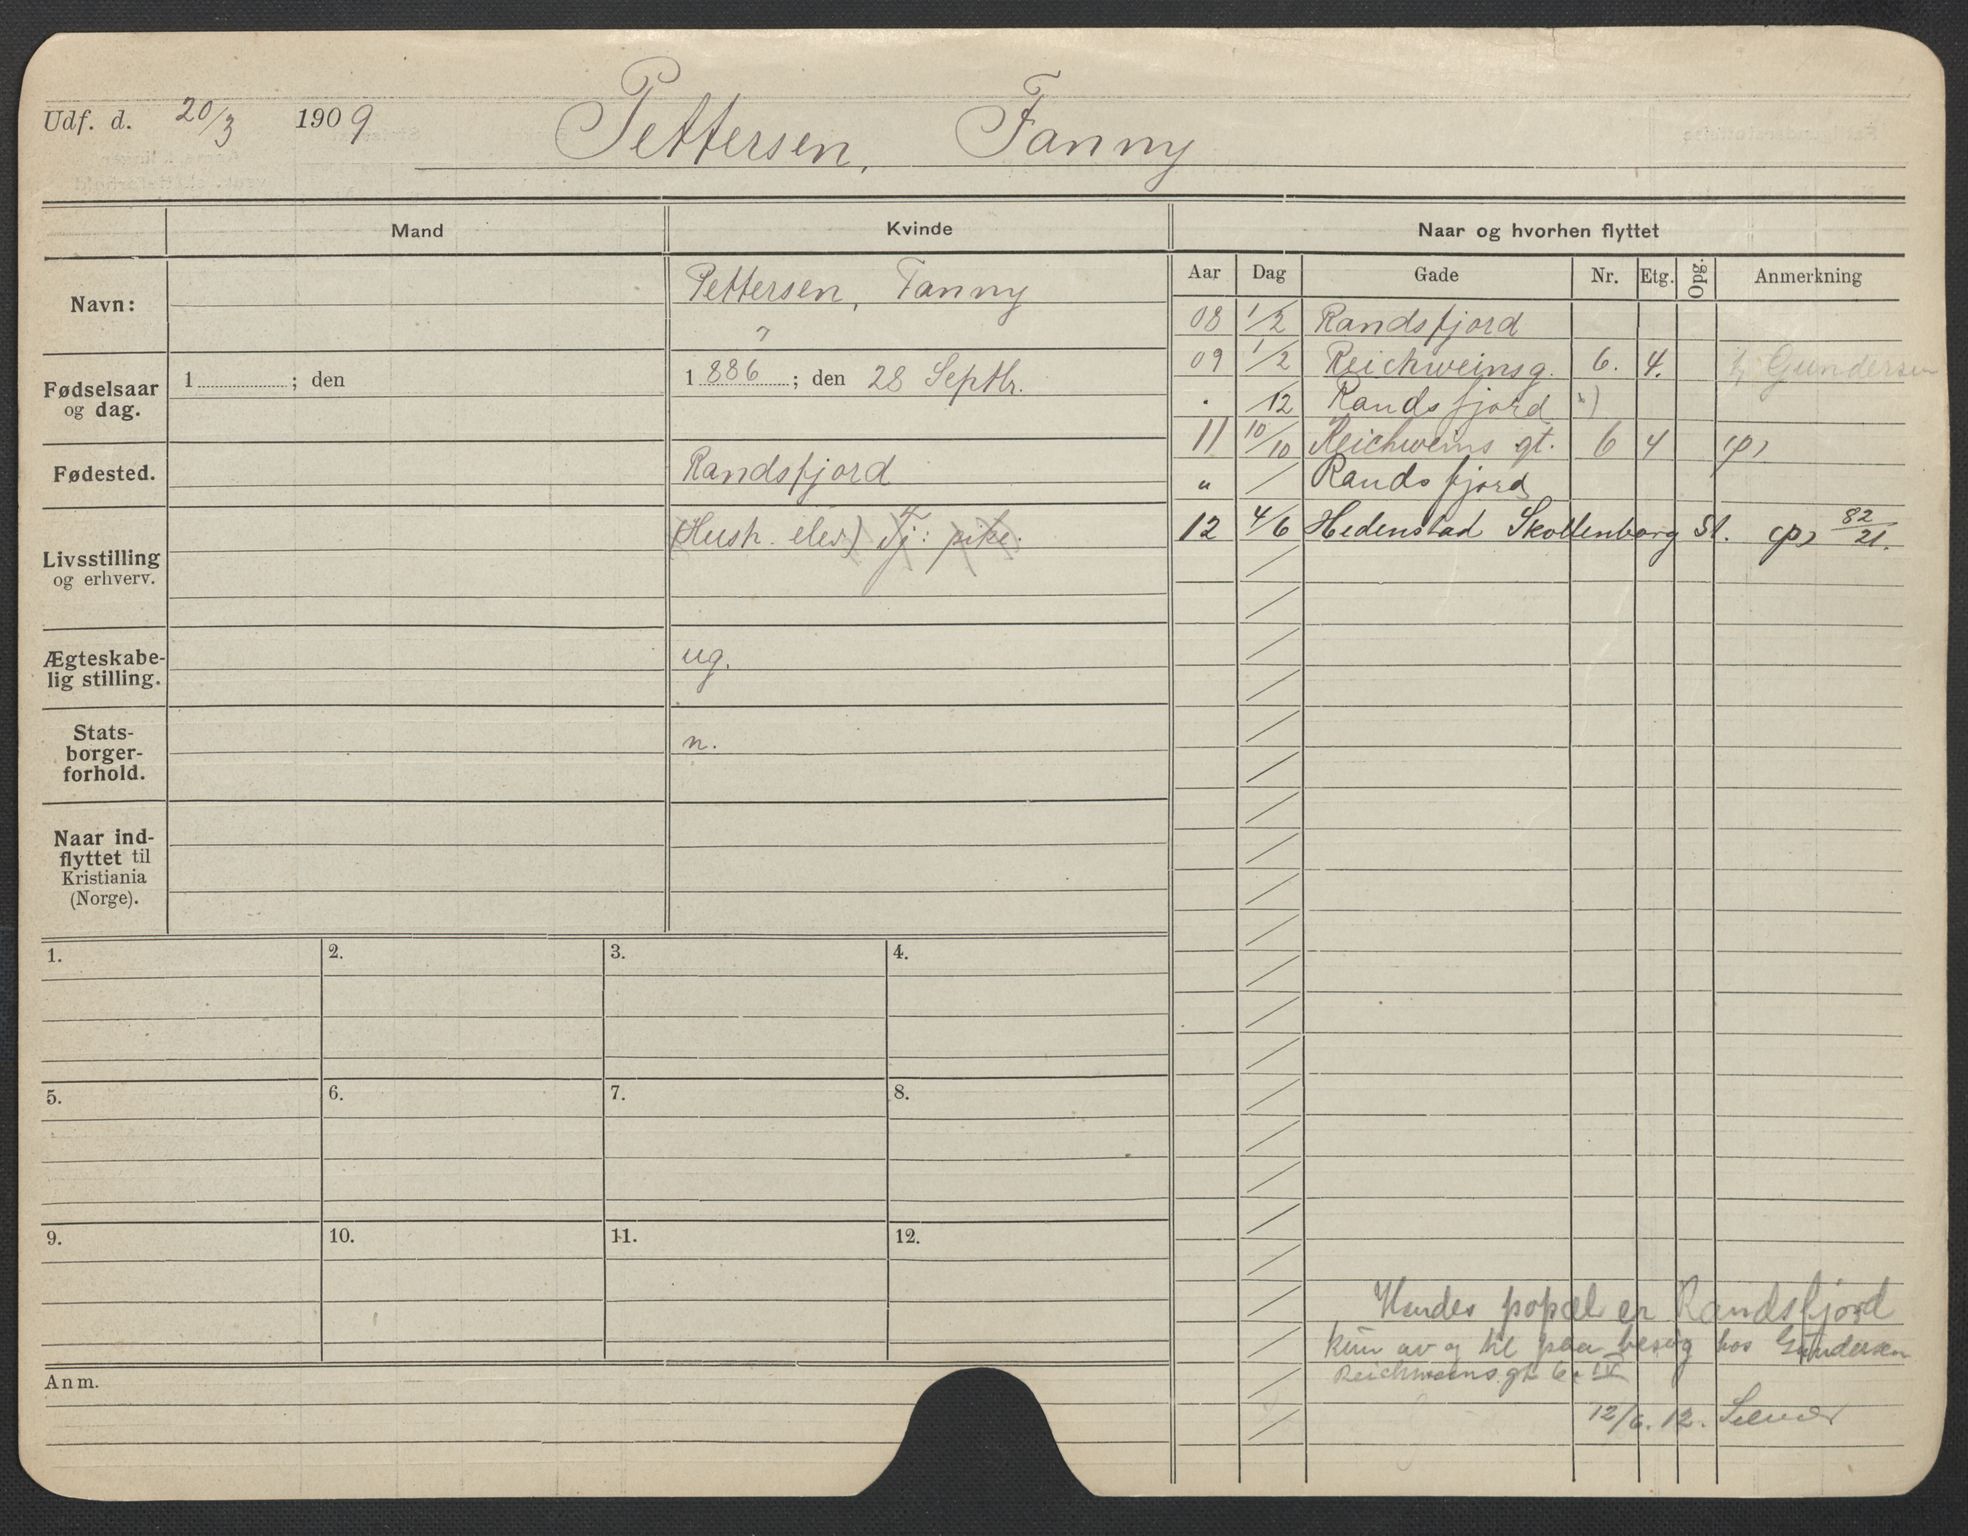 Udf. d. 20/3 1909 Pettersen, Fanny
Mand Kvinde Naar og hvorhen flyttet
Aar Dag Gade Nr. Etg. Opg. Anmerkning
Navn: Pettersen, Fanny
Fødselsaar og dag. 1 ; den 1 886 ; den 28 Septbr.
Fødested. Randsfjord
Livsstilling og erhverv. (Hush. elev) Tj: pike.
Ægteskabe-
lig stilling. ug.
Stats-
borger-
forhold. n.
Naar ind-
flyttet til
Kristiania
(Norge).
08 1/2 Randsfjord
09 1/2 Reichweinsg. 6. 4. Gundersen
. /12 Randsfjord
11 10/10 Reichweins gt. 6 4 (p)
" / Randsfjord
12 4/6 Hedenstad Skollenborg St. (p) 82/21.
1. 2. 3. 4.
5. 6. 7. 8.
9. 10. 11. 12.
Anm.
Hendes popæl er Randsfjord
kun av og til paa besøg hos Gundersen
Reichweinsgt 6. IV
12/6. 12.